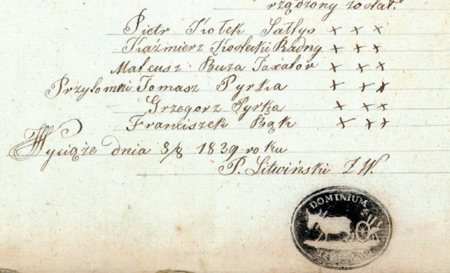 rządzony został.
Piotr Kiołek Sałtys × × ×
Kaźmierz Kosłecki Radny × × ×
Mateusz Buza Taxator × × ×
Przytomni Tomasz Pyrka × × ×
Grzegorz Pyrka × × ×
Franciszek Bąk × × ×
Wysiąże dnia 3/8 1839 roku
P. Litwiński Z.W.
DOMINIUM